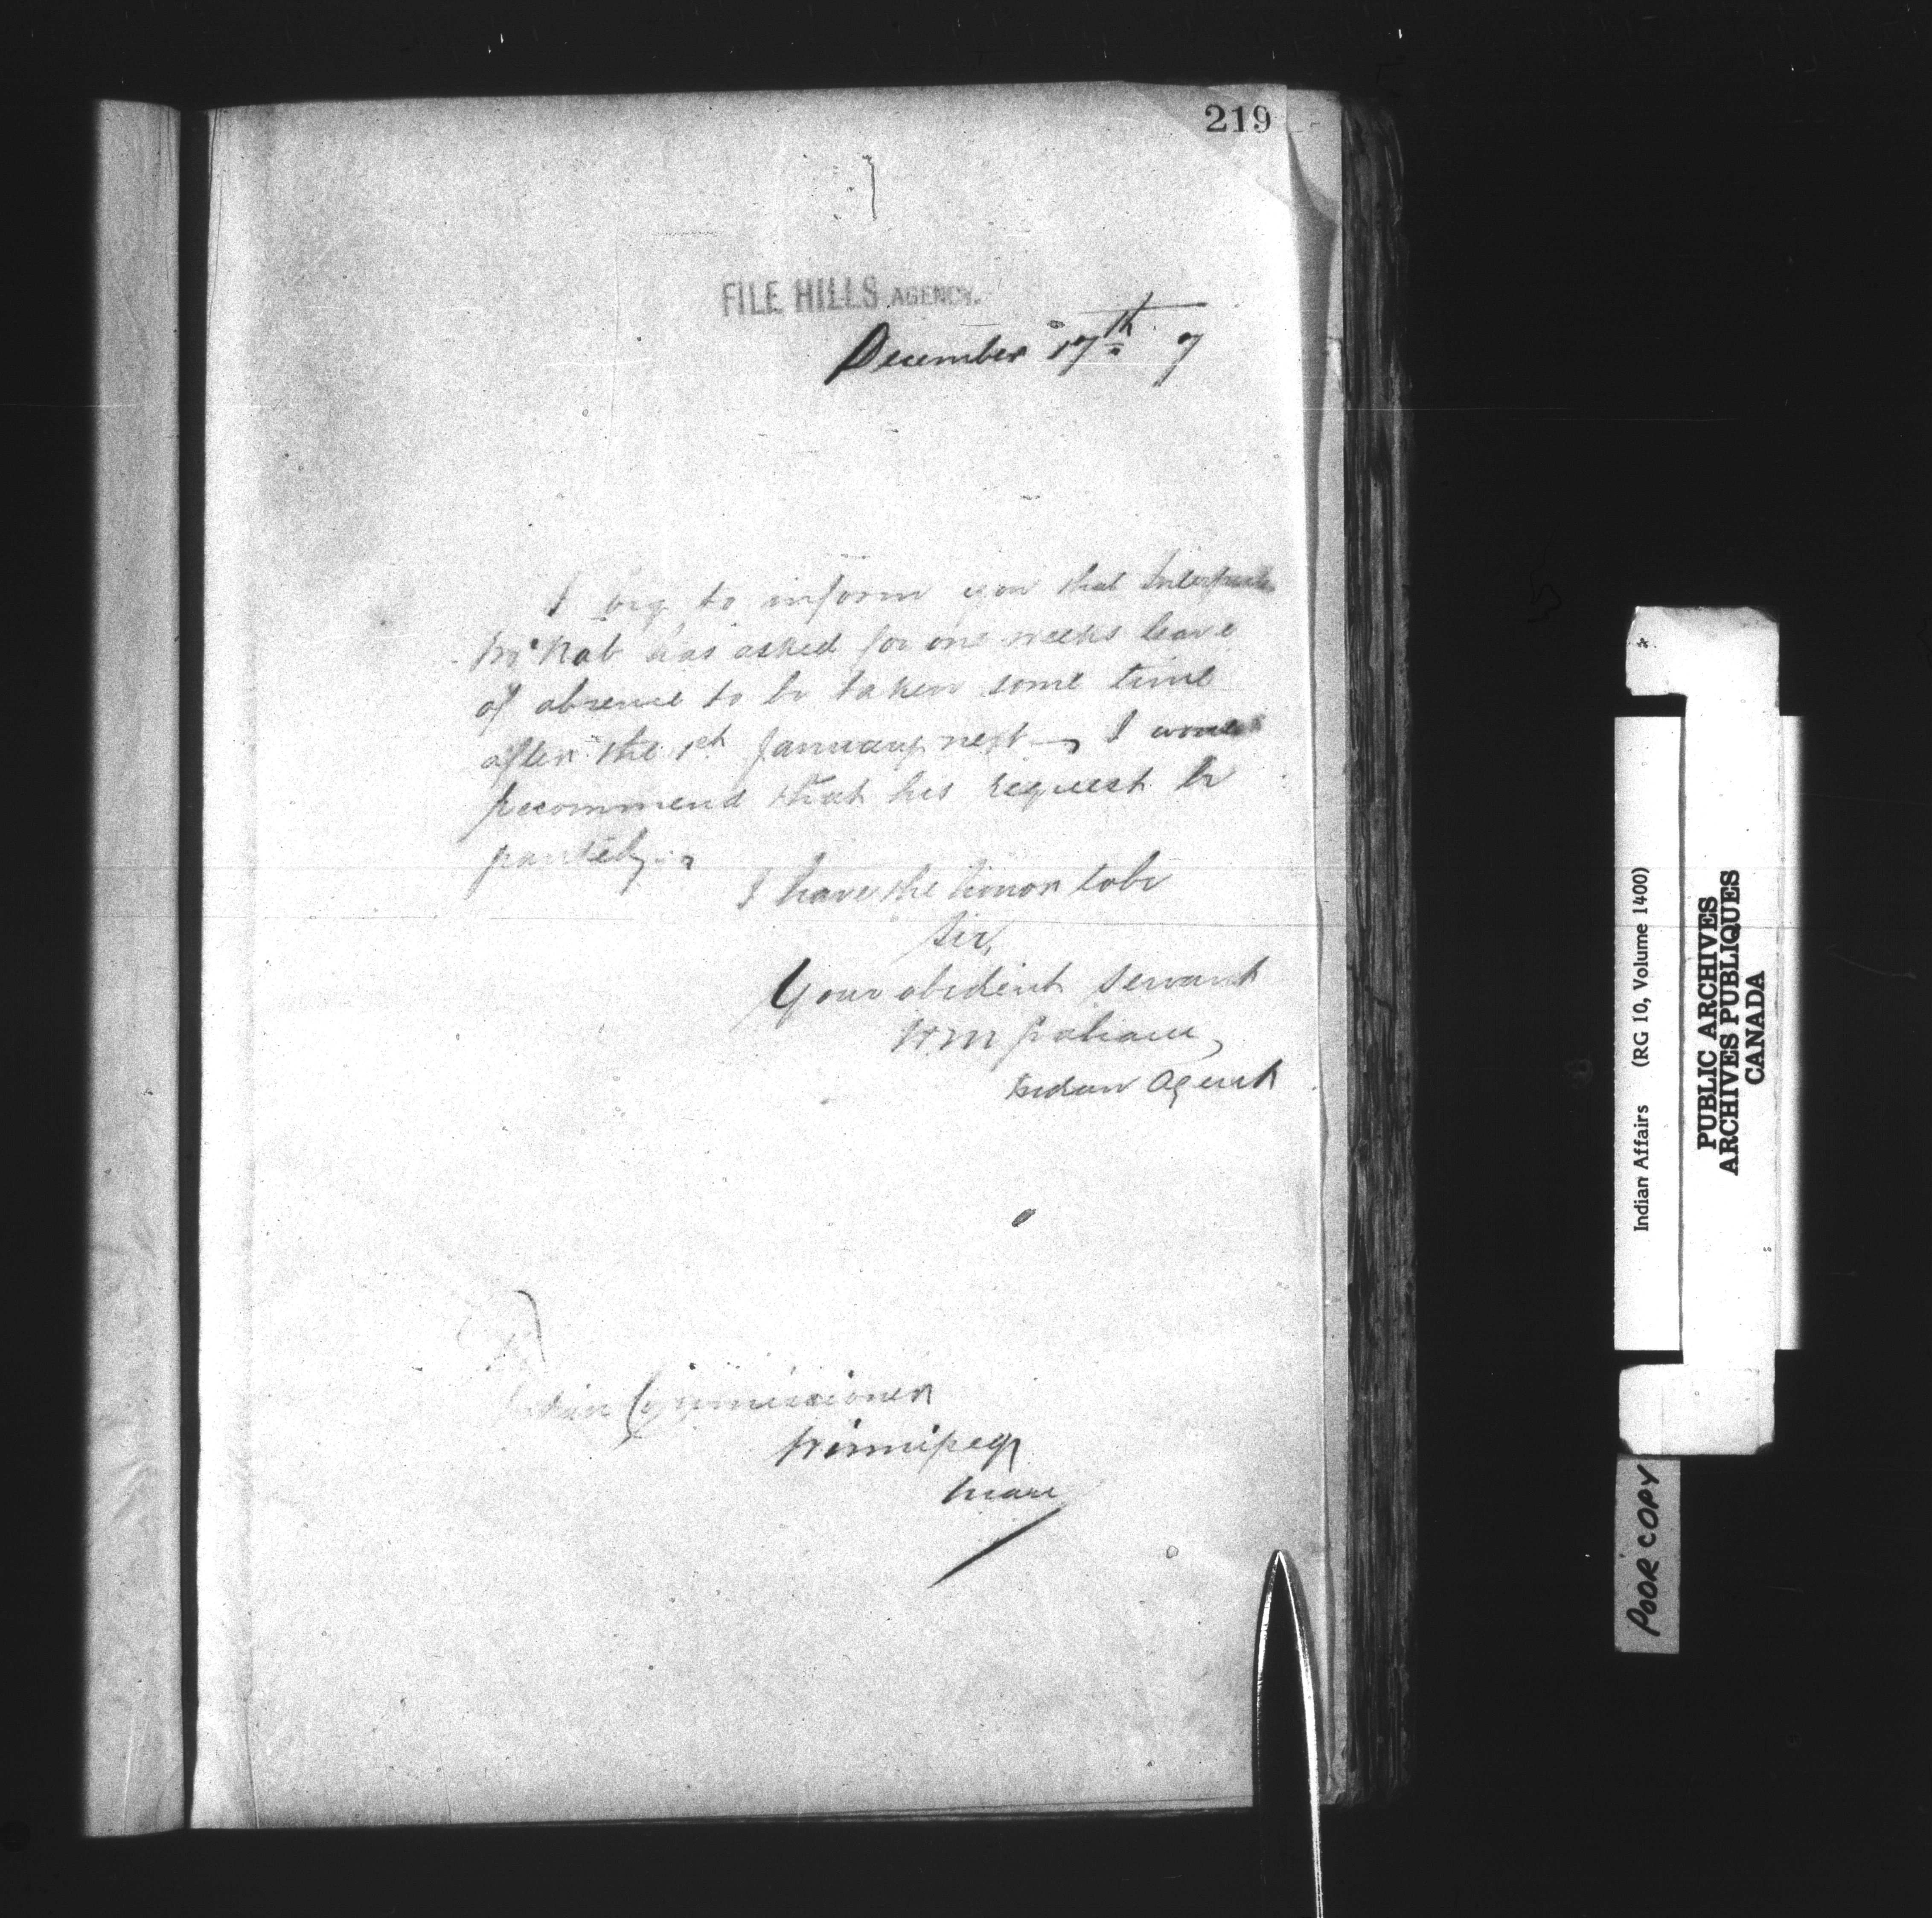 219
FILE HILLS AGENCY.
December 17th 7
I beg to inform you that Interpreter
McNab has asked for one weeks leave
of absence to be taken some time
after the 1st January next — I would
recommend that his request be
I have the honor to be
Sir,
Your obedient servant
Indian Agent
Commissioner
Winnipeg
Man
Indian Affairs (RG 10, Volume 1400)
PUBLIC ARCHIVES
ARCHIVES PUBLIQUES
CANADA
POOR COPY